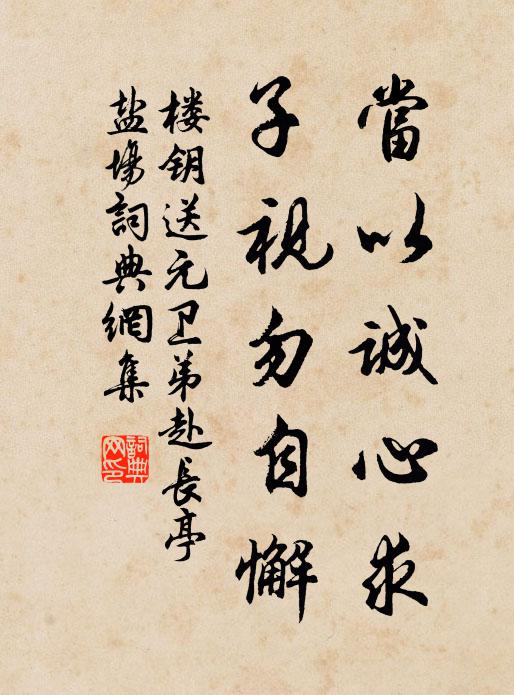 當以誠心求
子視勿自懈
楼钥送元卫弟赴长亭
盐场詞典網集
詞典
网印